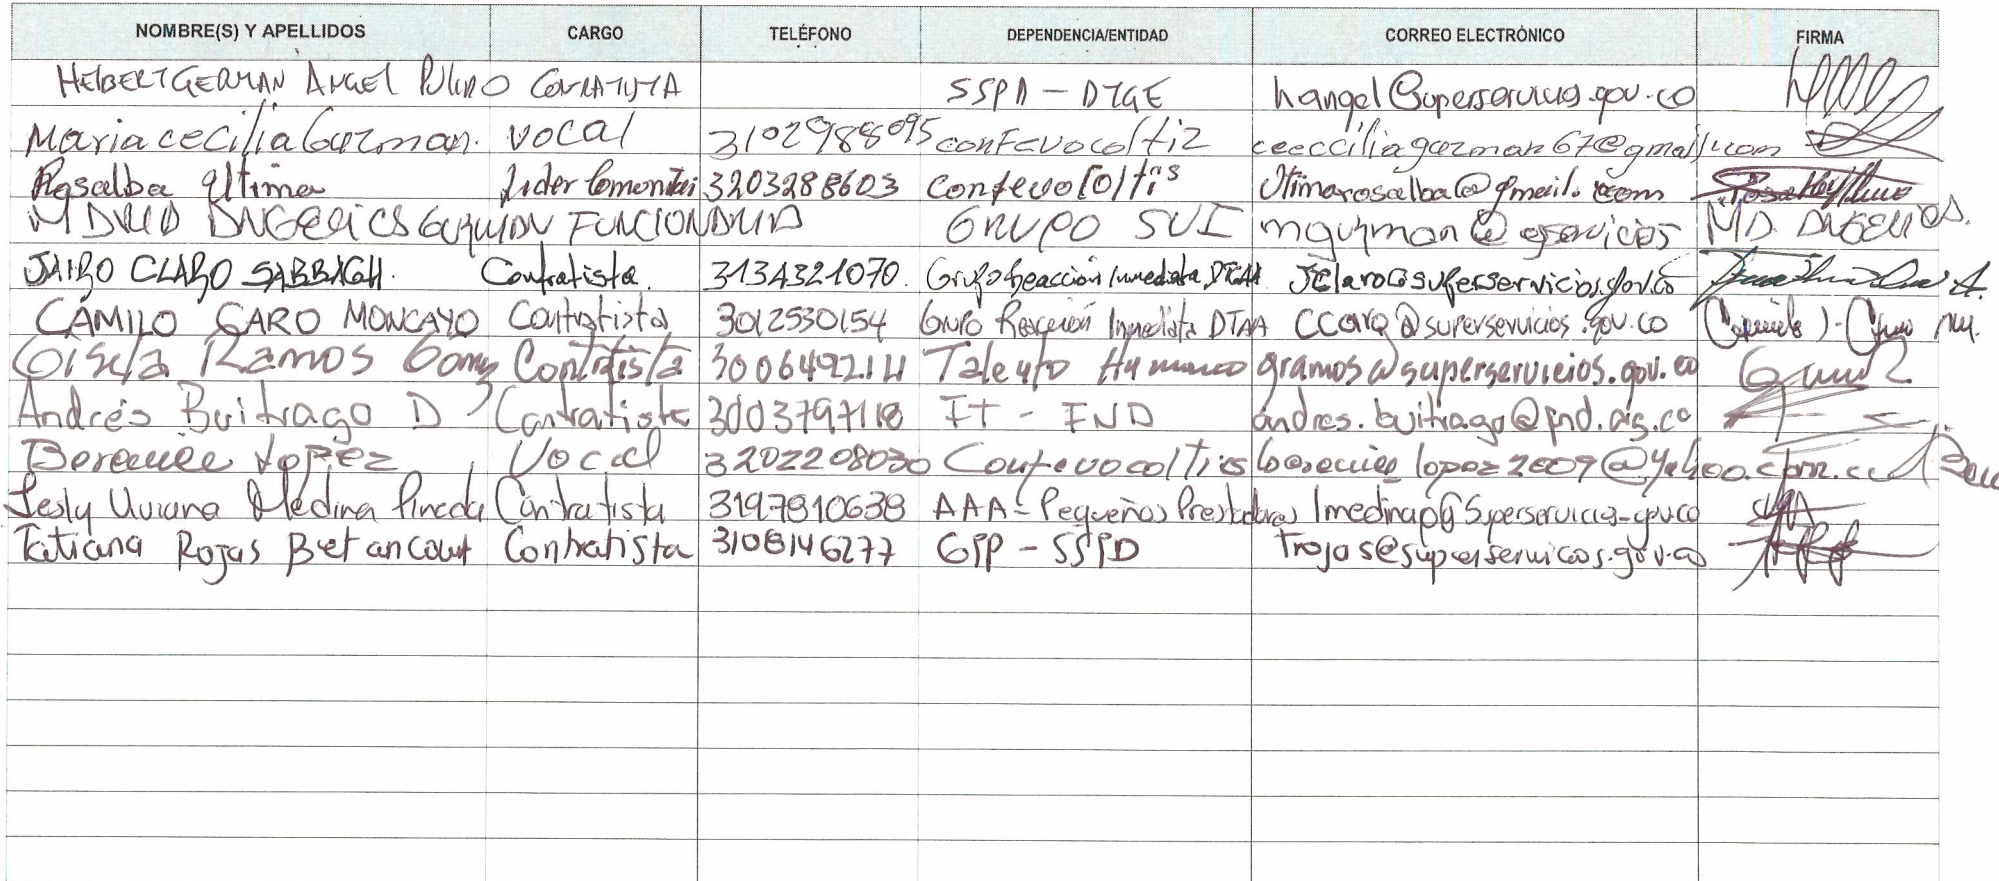 NOMBRE(S) Y APELLIDOS CARGO TELÉFONO DEPENDENCIA/ENTIDAD CORREO ELECTRÓNICO FIRMA
HELBERT GERMAN ANGEL PULIDO CONTRATISTA SSPD - DTGE hangel@superservicios.gov.co
Maria cecilia Guzman. vocal 3102988095 confevocoltiz ceeccilia guzman67@gmail.com
Rosalba Ultima Lider 3203288603 Confevocoltis Utimarosalba@gmail.com
MARIA ANGELICA GUZMAN FUNCIONARIA GRUPO SUI mguzman@ MA. ANGELICA.
JAIRO CLARO SABBAGH. Contratista. 3134321070. Grupo Reacción Inmediata DTGAA JClaro@superservicios.gov.co
CAMILO CARO MONCAYO Contratista 3012530154 Grupo Reacción Inmediata DTAA CCaro@superservicios.gov.co
Gisela Ramos Contratista 3006492211 Talento Humano gramos@superservicios.gov.co
Andrés Buitrago D Contratista 3003797118 FT - FND andres.buitrago@fnd.org.co
Berenice Lopez Vocal 3202208030 Confevocoltics berenice lopez2009@yahoo.com.
Lesly Viviana Medina Pineda Contratista 3197810638 AAA - Pequeños Prestadores lmedinap@Superservicios-gov.co
Tatiana Rojas Betancourt Contratista 3108146277 GPP - SSPD Trojas@superservicios.gov.co